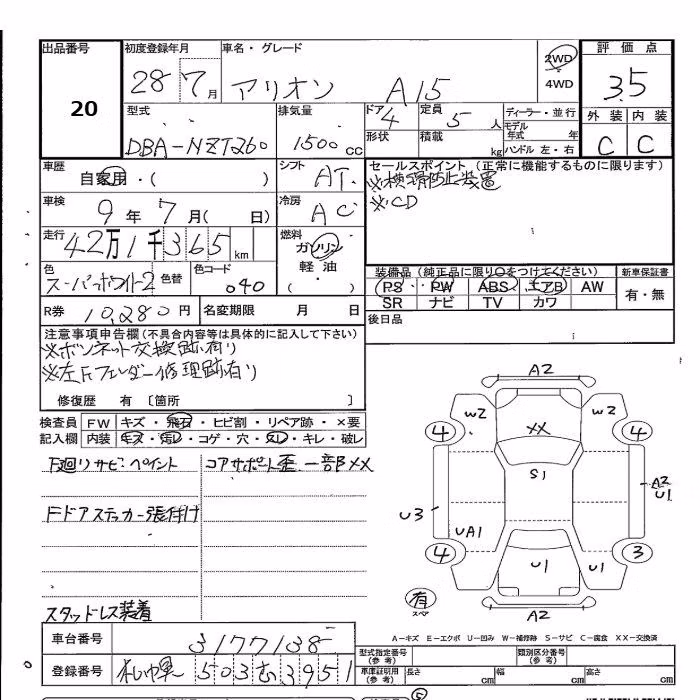 出品番号 初度登録年月 車名・グレード 評価点
20 28 7月 アリオン A15 2WD 4WD 3.5
型式 排気量 ドア 定員 ディーラー・並行 外装 内装
DBA-NZT260 1500cc 4 5人 モデル年式 年 C C
形状 積載 kg ハンドル 左・右
車歴 シフト セールスポイント(正常に機能するものに限ります)
自家用・( ) AT. ※横滑防止装置
車検 冷房 ※CD
9年7月( 日) AC
走行 燃料
42万1千365km ガソリン
色 色替 色コード 軽油
スーパーホワイト2 040 ( ・ )
装備品(純正品に限り○をつけてください) 新車保証書
PS PW ABS エアB AW 有・無
SR ナビ TV カワ
R券 10,280円 名変期限 月 日
後日品
注意事項申告欄(不具合内容等は具体的に記入して下さい)
※ボンネット交換跡有り
※左Fフェンダー修理跡有り
修復歴 有〔箇所 〕
検査員 FW キズ・飛石・ヒビ割・リペア跡・×要
記入欄 内装 キズ・汚レ・コゲ・穴・スレ・キレ・破レ
下廻りサビ・ペイント コアサポート歪 一部××
Fドアステッカー張付け
スタッドレス装着
A2
W2 W2
4 XX 4
S1
A2
U1
U3
UA1
4 U1 U1 3
有
スペ
A2
A-キズ E-エクボ U-凹み W-補修跡 S-サビ C-腐食 XX-交換済
車台番号 3177138
登録番号 503 む 3951
型式指定番号(参考) 類別区分番号(参考)
車庫証明用(参考) 長さ cm 幅 cm 高さ cm